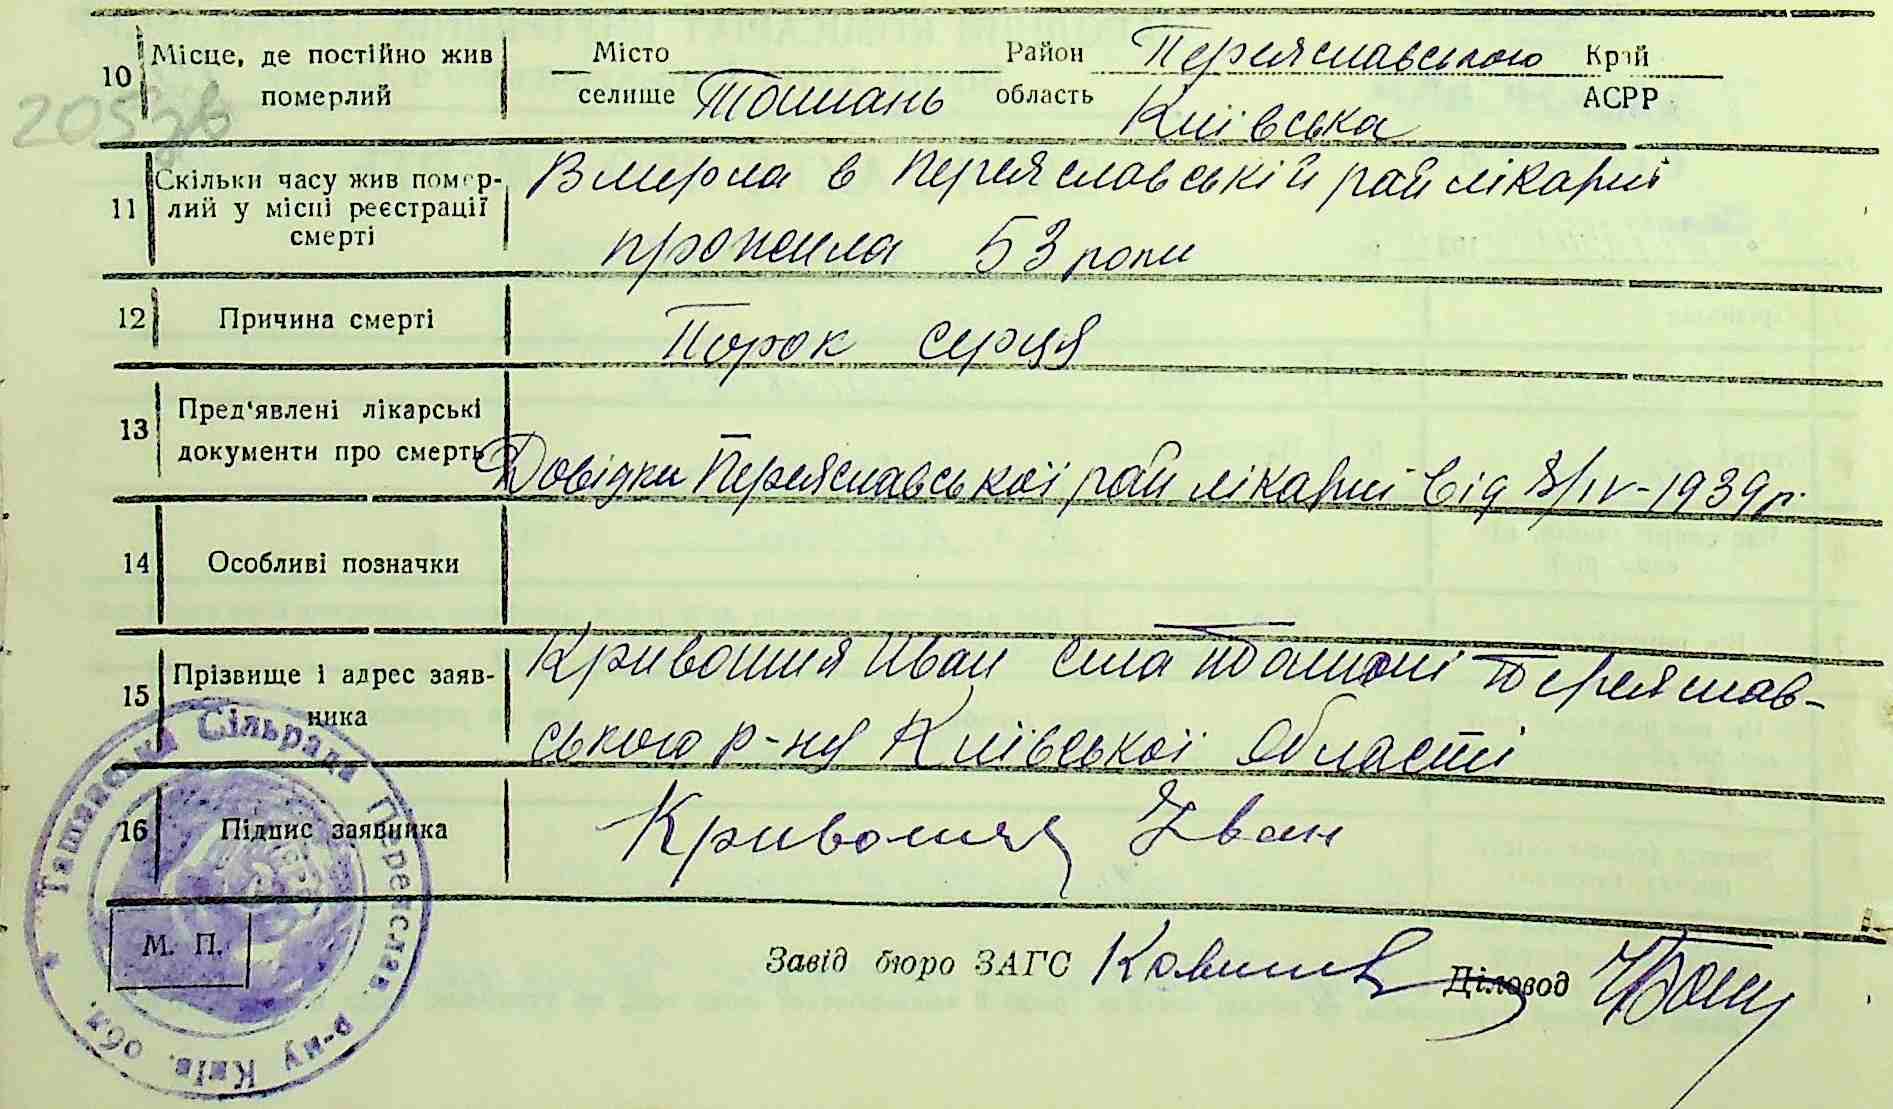 10 Місце, де постійно жив померлий
Місто Район Переяславського Край
селище Ташань область Київська АСРР
205зв
11 Скільки часу жив помер-
лий у місці реєстрації
смерті
Вмерла в Переяславській райлікарні
прожила 53 роки
12 Причина смерті
Порок серця
13 Пред'явлені лікарські
документи про смерть
Довідки Переяславської райлікарні від 8/IV-1939р.
14 Особливі позначки
15 Прізвище і адрес заяв-
ника
Кривошия Иван села Ташані Переяслав-
ського р-ну Київської області
16 Підпис заявника
Кривошия Іван
М. П.
Ташанська Сільрада Переяслав. р-ну Київ. обл.
Завід бюро ЗАГС Діловод